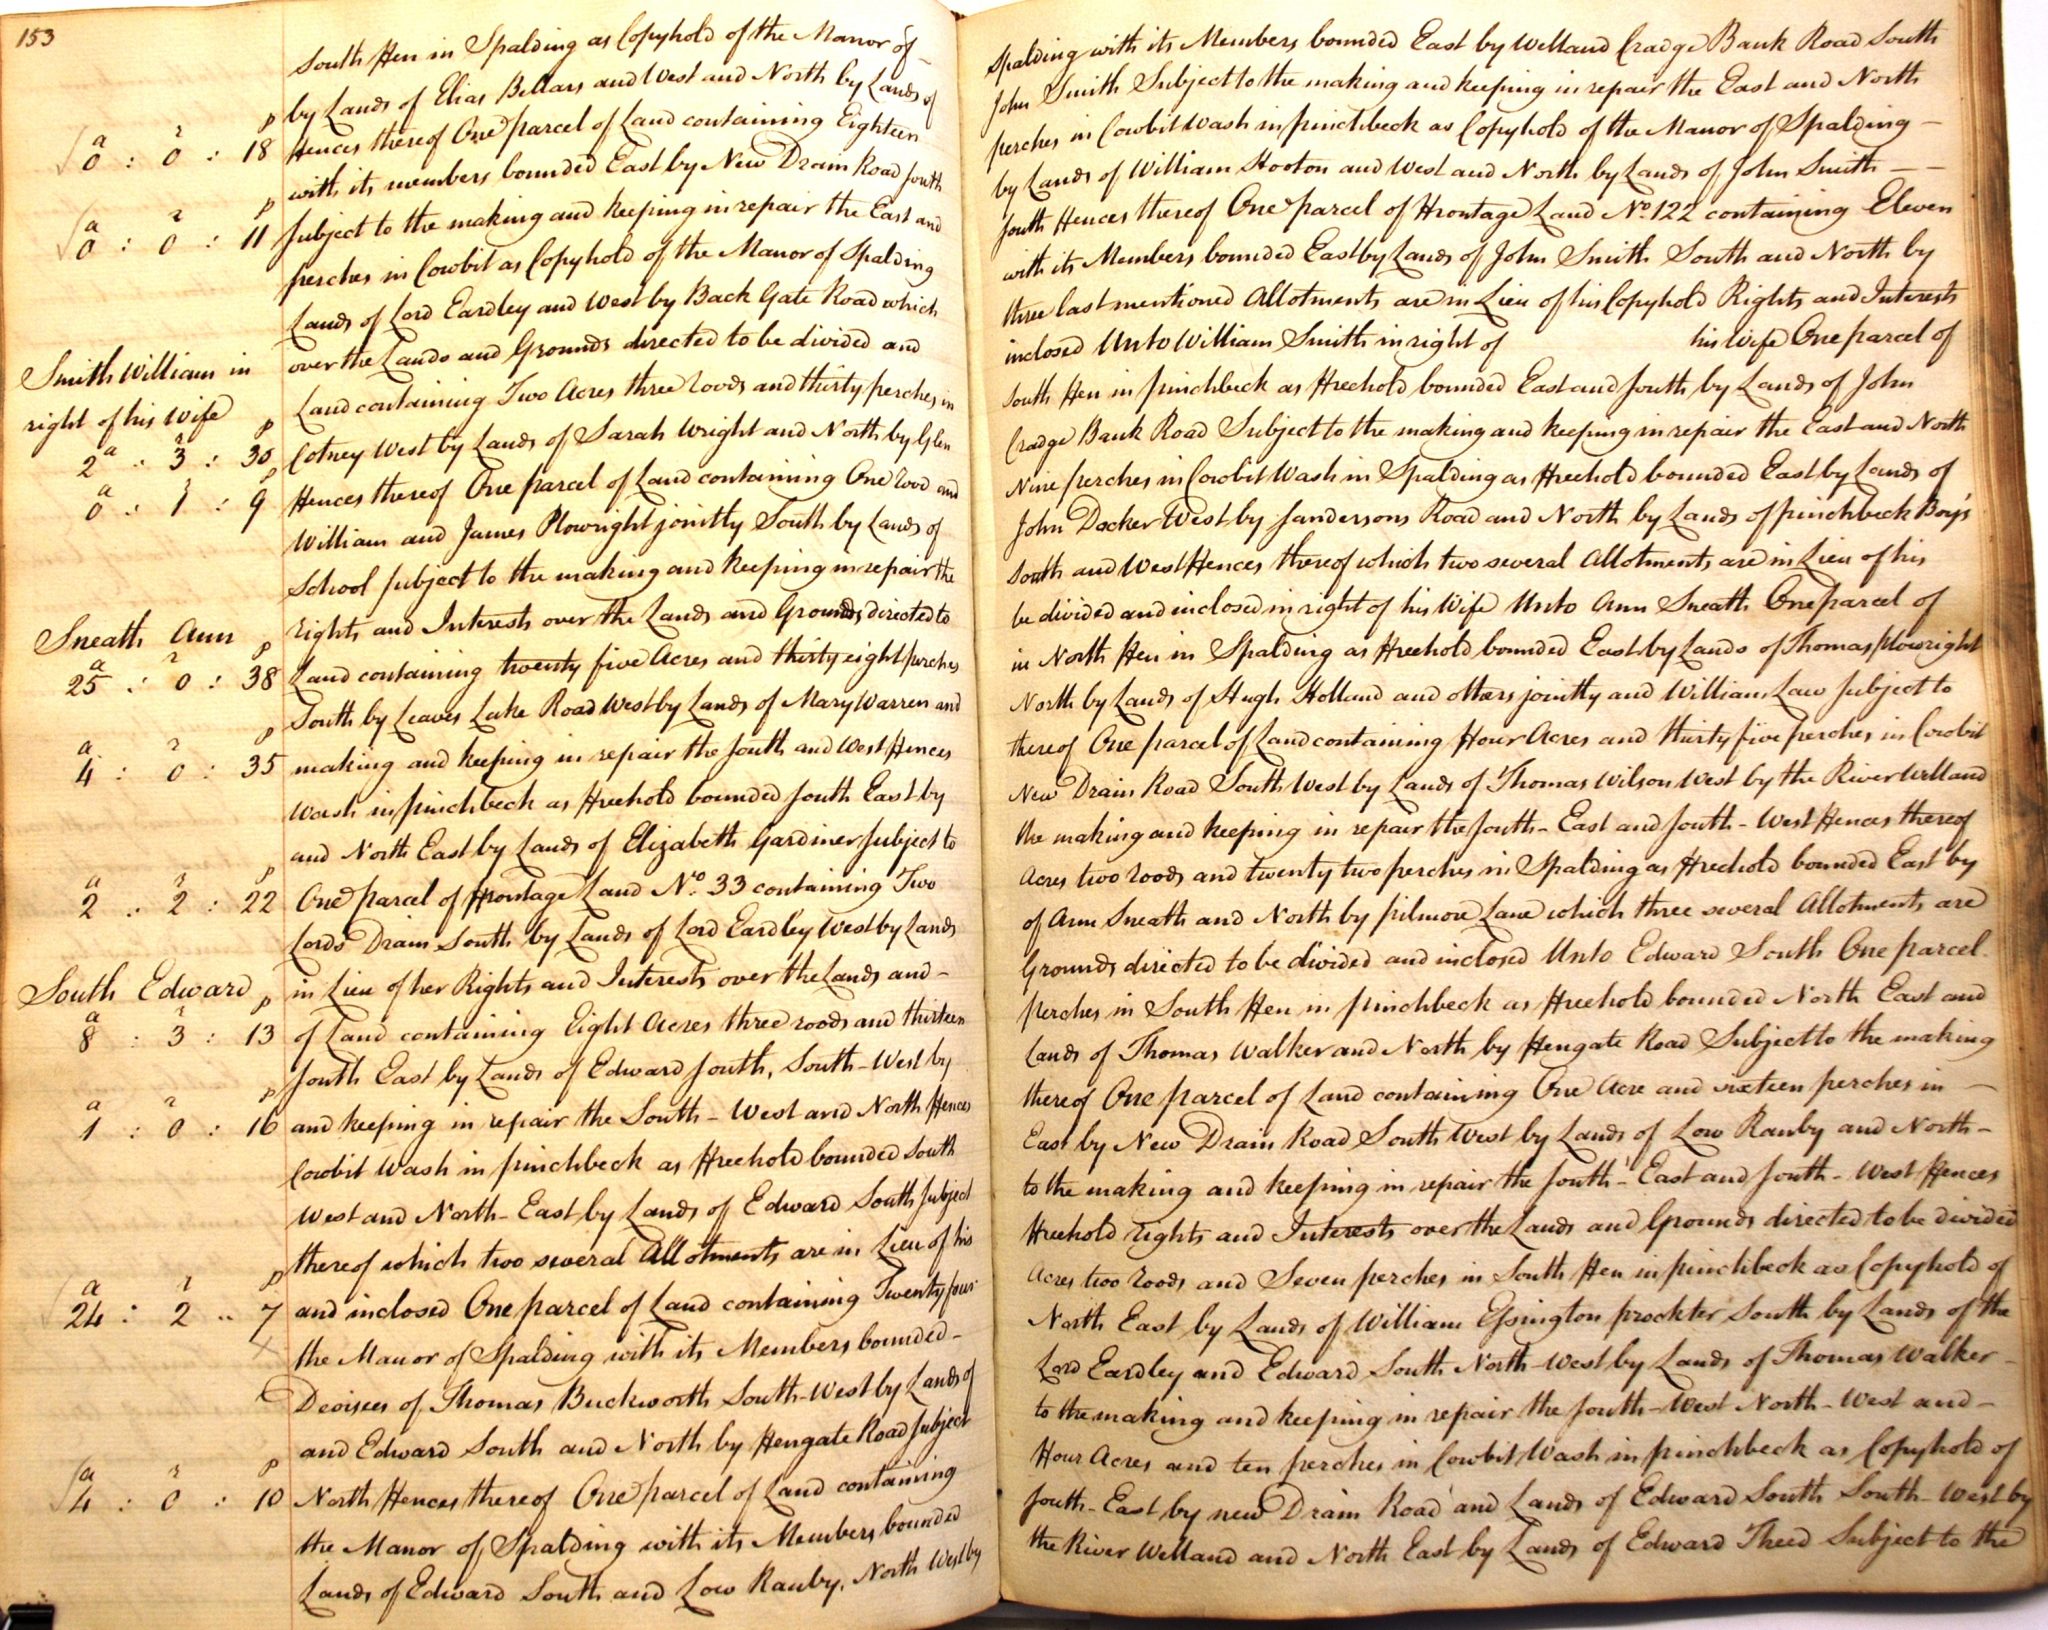 153
South Fen in Spalding as Copyhold of the Manor of – Spalding with its Members bounded East by Welland Cradge Bank Road South
by Lands of Elias Bellars and West and North by Lands of John Smith Subject to the making and keeping in repair the East and North
a r p
0 : 0 : 18 Fences thereof One parcel of Land containing Eighteen perches in Cowbit Wash in pinchbeck as Copyhold of the Manor of Spalding –
with its members bounded East by New Drain Road South by Lands of William Hooton and West and North by Lands of John Smith – –
a r p
0 : 0 : 11 Subject to the making and keeping in repair the East and South Fences thereof One parcel of Frontage Land No. 122 containing Eleven
perches in Cowbit as Copyhold of the Manor of Spalding with its Members bounded East by Lands of John Smith South and North by
Lands of Lord Eardley and West by Back Gate Road which three last mentioned Allotments are in Lieu of his Copyhold Rights and Interests
over the Lands and Grounds directed to be divided and inclosed Unto William Smith in right of his Wife One parcel of
Smith William in
right of his Wife
Land containing Two Acres three roods and thirty perches in South Fen in pinchbeck as Freehold bounded East and South by Lands of John
a r p
2 : 3 : 30 Cotney West by Lands of Sarah Wright and North by Glen Cradge Bank Road Subject to the making and keeping in repair the East and North
a r p
0 : 1 : 9 Fences thereof One parcel of Land containing One rood and Nine perches in Cowbit Wash in Spalding as Freehold bounded East by Lands of
William and James Plowright jointly South by Lands of John Docker West by Sandersons Road and North by Lands of pinchbeck Boys
School Subject to the making and keeping in repair the South and West Fences thereof which two several Allotments are in Lieu of his
rights and Interests over the Lands and Grounds directed to be divided and inclosed in right of his Wife Unto Ann Sneath One parcel of
Sneath Ann
a r p
25 : 0 : 38 Land containing twenty five Acres and thirty eight perches in North Fen in Spalding as Freehold bounded East by Lands of Thomas plowright
South by Leaves Lake Road West by Lands of Mary Warren and North by Lands of Hugh Holland and others jointly and William Law Subject to
a r p
4 : 0 : 35 making and keeping in repair the South and West Fences thereof One parcel of Land containing Four Acres and thirty five perches in Cowbit
Wash in pinchbeck as Freehold bounded South East by New Drain Road South West by Lands of Thomas Wilson West by the River Welland
and North East by Lands of Elizabeth Gardiner Subject to the making and keeping in repair the South - East and South - West Fences thereof
a r p
2 : 2 : 22 One parcel of Frontage Land No. 33 containing Two Acres two roods and twenty two perches in Spalding as Freehold bounded East by
Lords Drain South by Lands of Lord Eardley West by Lands of Ann Sneath and North by pilmore Lane which three several Allotments are
in Lieu of her Rights and Interests over the Lands and – Grounds directed to be divided and inclosed Unto Edward South One parcel
South Edward
a r p
8 : 3 : 13 of Land containing Eight Acres three roods and thirteen perches in South Fen in pinchbeck as Freehold bounded North East and
South East by Lands of Edward South, South - West by Lands of Thomas Walker and North by Fengate Road Subject to the making
a r p
1 : 0 : 16 and keeping in repair the South - West and North Fences thereof One parcel of Land containing One Acre and sixteen perches in –
Cowbit Wash in pinchbeck as Freehold bounded South East by New Drain Road South West by Lands of Low Ranby and North -
West and North - East by Lands of Edward South Subject to the making and keeping in repair the South - East and South - West Fences
thereof which two several Allotments are in Lieu of his Freehold rights and Interests over the Lands and Grounds directed to be divided
a r p
24 : 2 : 7 and inclosed One parcel of Land containing Twenty four Acres two roods and Seven perches in South Fen in pinchbeck as Copyhold of
the Manor of Spalding with its Members bounded – North East by Lands of William Essington prockter South by Lands of the
Devisees of Thomas Buckworth South - West by Lands of Lord Eardley and Edward South North - West by Lands of Thomas Walker –
and Edward South and North by Fengate Road Subject to the making and keeping in repair the South - West North - West and –
a r p
4 : 0 : 10 North Fences thereof One parcel of Land containing Four Acres and ten perches in Cowbit Wash in pinchbeck as Copyhold of
the Manor of Spalding with its Members bounded South - East by new Drain Road and Lands of Edward South South - West by
Lands of Edward South and Low Ranby, North West by the River Welland and North East by Lands of Edward Theed Subject to the